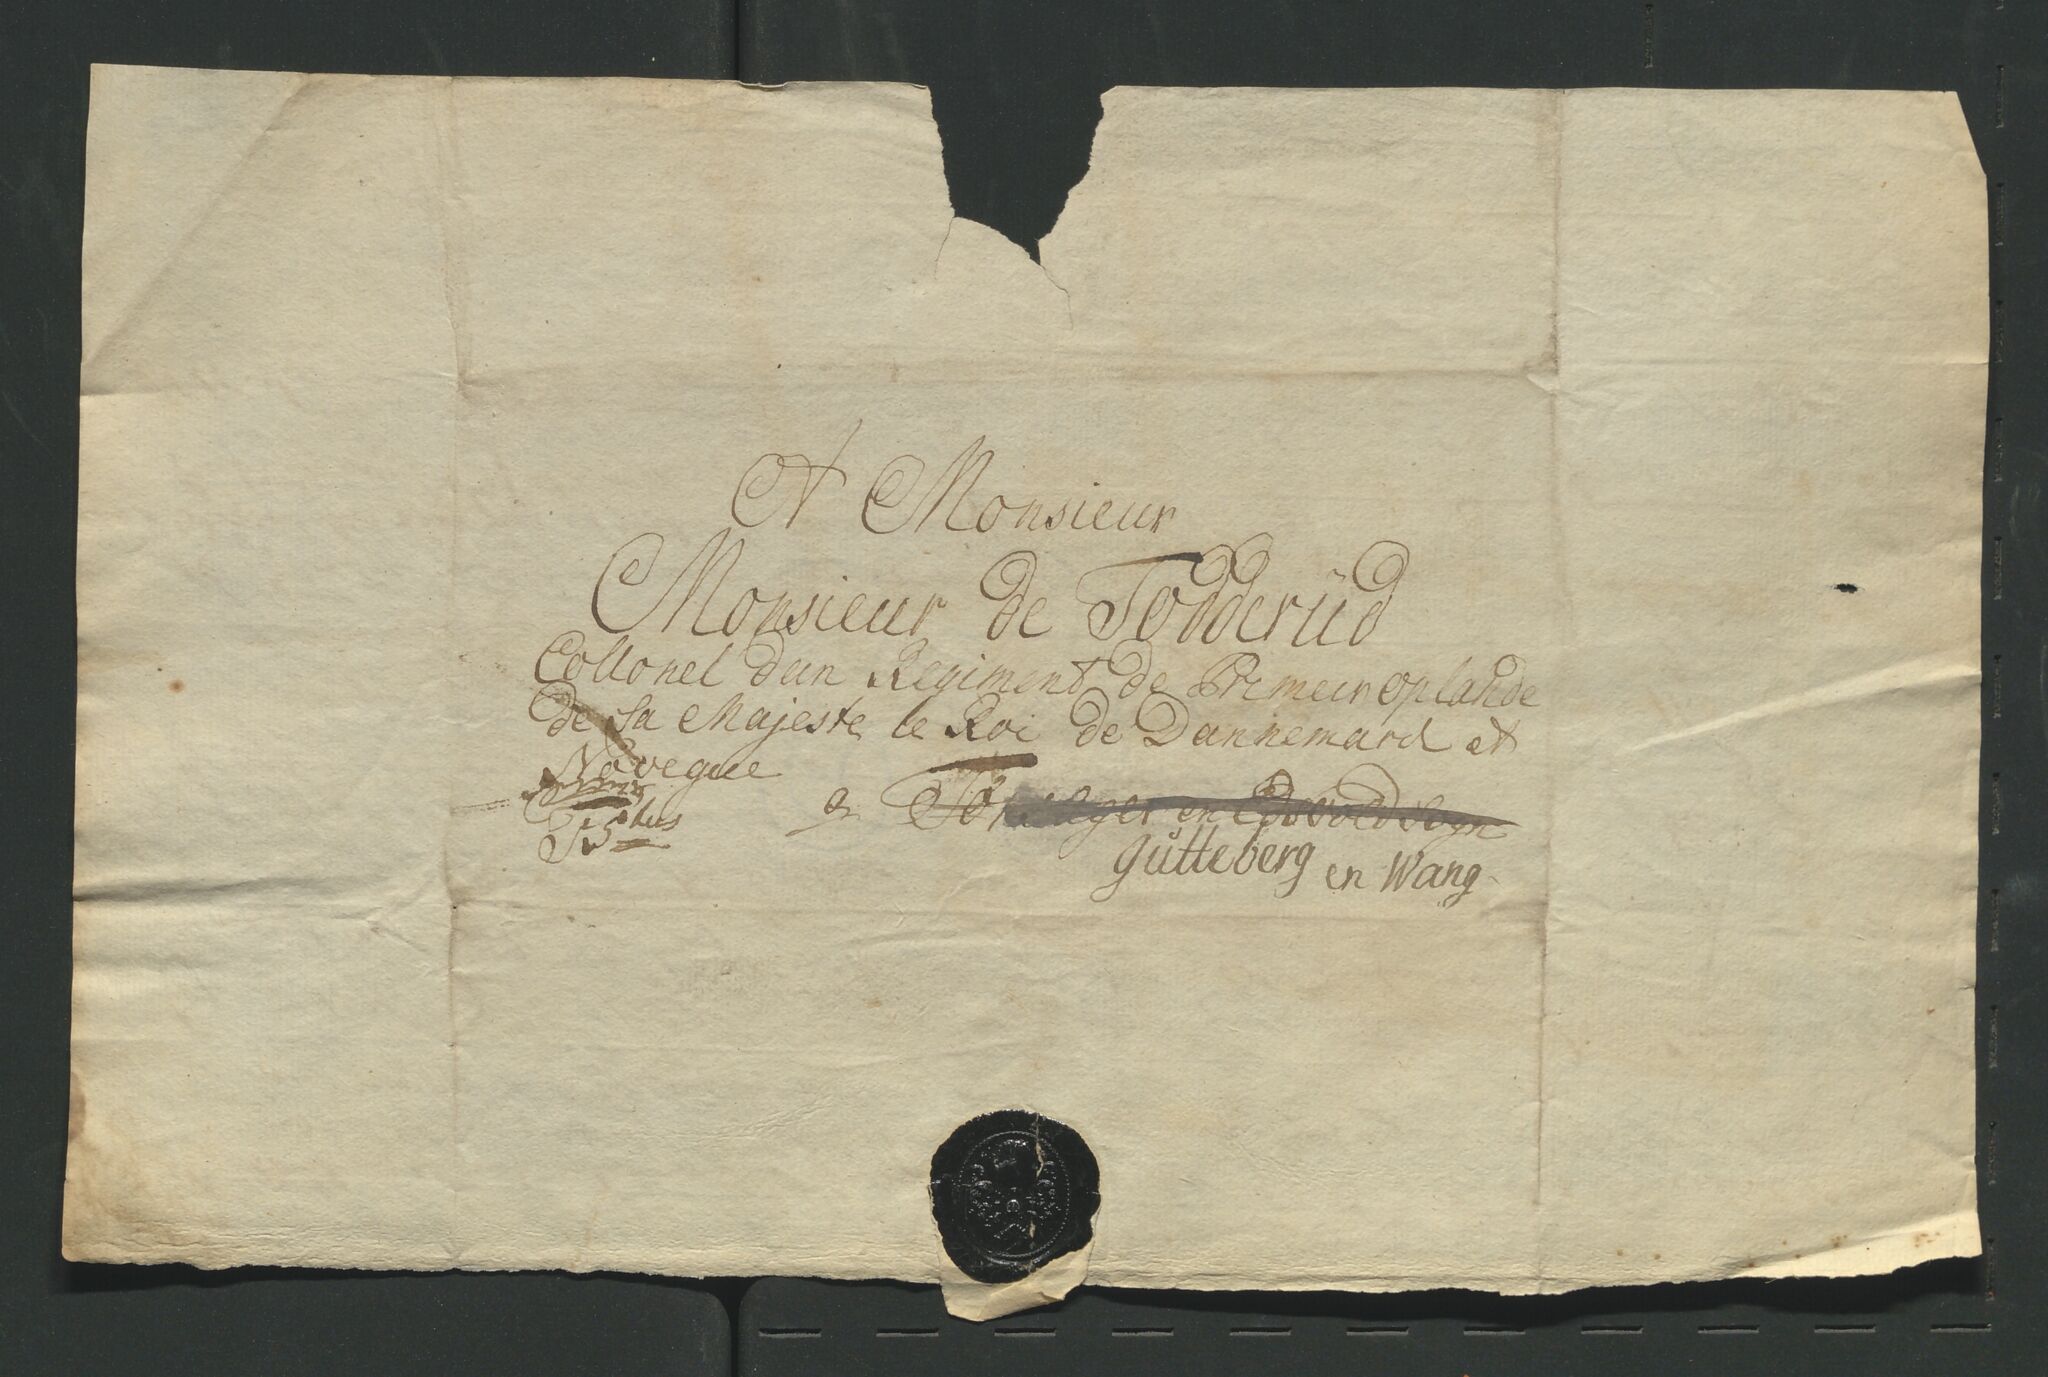 A Monsieur
Monsieur de Todderüd
Collonel dun Regiment de Premeur oplande
de Sa Majeste le Roi de Dannemarck et
Novegue
a en
gütteberg en Wang